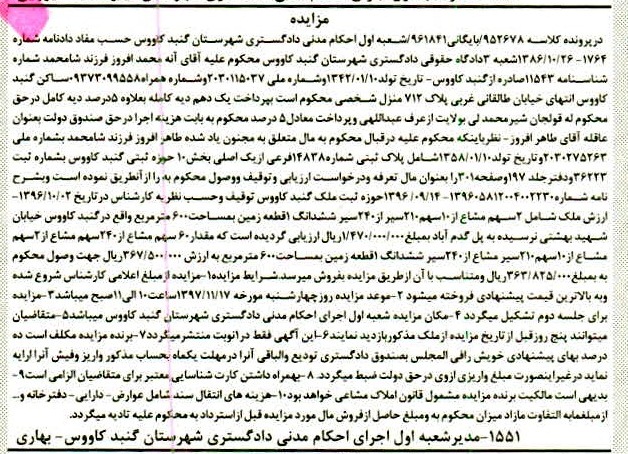 مزایده
در پرونده کلاسه ۹۵۲۶۷۸/بایگانی۹۶۱۸۴۱/شعبه اول احکام مدنی دادگستری شهرستان گنبد کاووس حسب مفاد دادنامه شماره
۱۷۶۴- ۱۳۸۶/۱۰/۲۶شعبه ۳دادگاه حقوقی دادگستری شهرستان گنبد کاووس محکوم علیه آقای آنه محمد افروز فرزند شامحمد شماره
شناسنامه ۱۱۵۴۳صادره از گنبد کاووس- تاریخ تولد۱۳۴۲/۰۱/۱۰وشماره ملی ۲۰۳۰۱۱۵۰۳۷وشماره همراه۰۹۳۷۳۰۹۹۵۵۸ساکن گنبد
کاووس انتهای خیابان طالقانی غربی پلاک ۷۱۲ منزل شخصی محکوم است بپرداخت یک دهم دیه کامله بعلاوه ۵درصد دیه کامل درحق
محکوم له قولجان شیرمحمد لی بولایت از عرف عبداللهی و پرداخت معادل۵ درصد محکوم به بابت هزینه اجرا درحق صندوق دولت بعنوان
عاقله آقای طاهر افروز- نظرباینکه محکوم علیه درقبال محکوم به مال متعلق به مجنون یاد شده طاهر افروز فرزند شامحمد بشماره ملی
۲۰۳۰۲۷۵۲۶۳وتاریخ تولد۱۳۵۸/۰۱/۱۰شامل پلاک ثبتی شماره۱۴۸۳۸فرعی از یک اصلی بخش۱۰ حوزه ثبتی گنبد کاووس بشماره ثبت
۳۶۲۲۳ودفترجلد ۱۹۷وصفحه۳۰۱را بعنوان مال تعرفه ودرخواست ارزیابی و توقیف ووصول محکوم به را از آنطریق نموده است وبشرح
نامه شماره۱۳۹۶۰۵۸۱۲۰۰۴۰۰۲۲۳۰- ۱۳۹۶/۰۹/۱۴حوزه ثبت ملک گنبد کاووس توقیف وحسب نظریه کارشناس درتاریخ ۱۳۹۶/۱۰/۰۲-
ارزش ملک شامل ۲سهم مشاع از۱۰سهم۲۱۰سیر از۲۴۰سیر ششدانگ ۱قطعه زمین بمساحت۶۰۰ مترمربع واقع درگنبد کاووس خیابان
شهید بهشتی نرسیده به پل گدم آباد بمبلغ۱/۴۷۰/۰۰۰/۰۰۰ریال ارزیابی گردیده است که مقدار۶۰ سهم مشاع از۲۴۰سهم مشاع از۲سهم
مشاع از۱۰سهم۲۱۰سیر مشاع از۲۴۰سیر ششدانگ ۱قطعه زمین بمساحت۶۰۰ مترمربع به ارزش ۳۶۷/۵۰۰/۰۰۰ریال جهت وصول محکوم
به بمبلغ۳۶۳/۸۲۵/۰۰۰ریال ومتناسب با آن ازطریق مزایده بفروش میرسد.شرایط مزایده۱-مزایده ازمبلغ اعلامی کارشناس شروع شده
وبه بالاترین قیمت پیشنهادی فروخته میشود ۲-موعد مزایده روز چهارشنبه مورخه ۱۳۹۷/۱۱/۱۷ساعت۱۰ الی۱۱صبح میباشد۳-مزایده
برای جلسه دوم تشکیل میگردد ۴-مکان مزایده شعبه اول اجرای احکام مدنی دادگستری شهرستان گنبد کاووس میباشد۵-متقاضیان
میتوانند پنج روزقبل از تاریخ مزایده ازملک مذکوربازدید نمایند۶-این آگهی فقط در۱نوبت منتشرمیگردد۷-برنده مزایده مکلف است ده
درصد بهای پیشنهادی خویش رافی المجلس بصندوق دادگستری تودیع والباقی آنرا درمهلت یکماه بحساب مذکور واریز وفیش آنرا ارایه
نماید درغیراینصورت مبلغ واریزی ازوی درحق دولت ضبط میگردد. ۸-بهمراه داشتن کارت شناسایی معتبر برای متقاضیان الزامی است۹-
بدیهی است مالکیت برنده مزایده مشمول قانون املاک مشاعی خواهد بود۱۰-هزینه های انتقال سند شامل عوارض- دارایی- دفترخانه و...
ازمبلغمابه التفاوت مازاد میزان محکوم به ومبلغ حاصل ازفروش مال مورد مزایده قبل ازاسترداد به محکوم علیه تادیه میگردد.
۱۵۵۱-مدیرشعبه اول اجرای احکام مدنی دادگستری شهرستان گنبد کاووس- بهاری